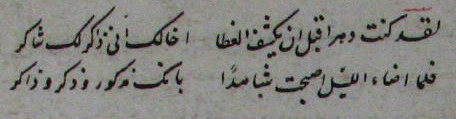 لقد كنت دهرا قبل ان يكشف الغطا اخالك انى ذاكر لك شاكر
فلما اضاء الليل اصبحت شاهدا بانك مذكور وذكر وذاكر